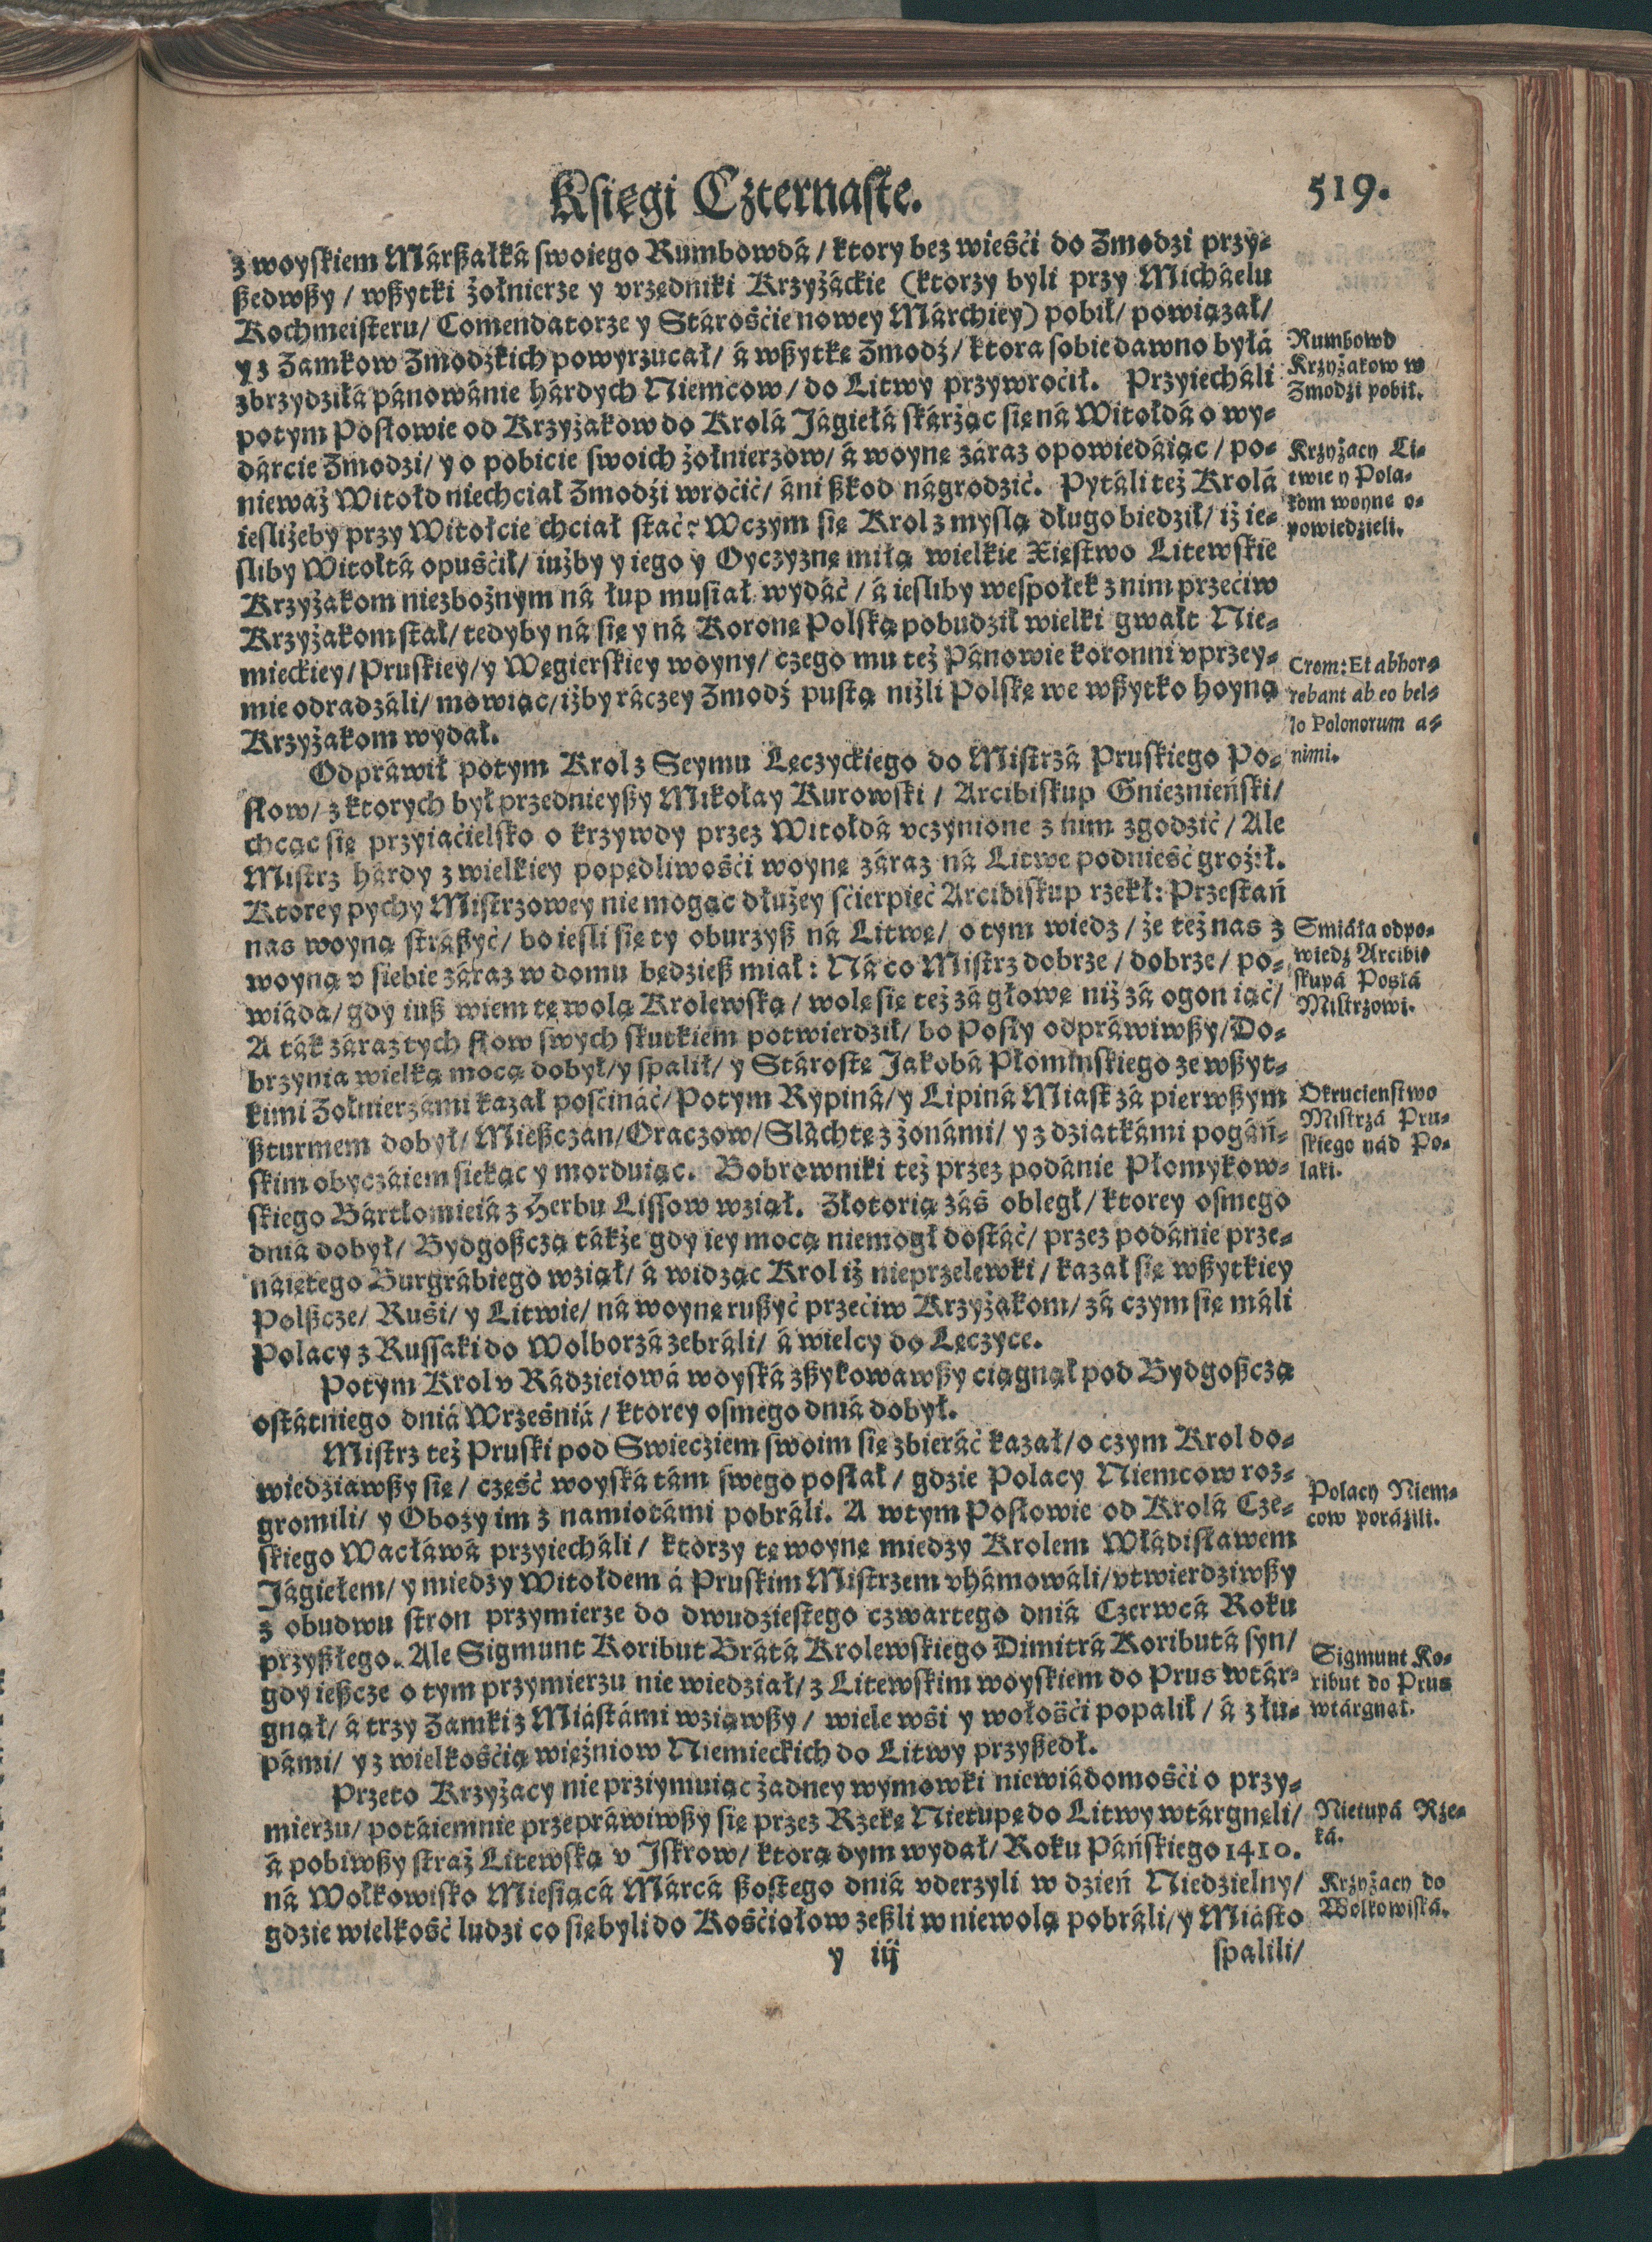 Księgi Czternaste.
519.
z woyskiem Márßałká swoiego Rumbowdá / ktory bez wieśći do Zmodzi przy-
ßedwßy / wßytki żołnierze y vrzędniki Krzyżáckie (ktorzy byli przy Micháelu
Kochmeisteru / Comendatorze y Stárośćie nowey Márchiey) pobił / powiązał /
y z Zamkow Zmodzkich powyrzucał / á wßytkę Zmodź / ktora sobie dawno byłá
zbrzydziłá pánowánie hárdych Niemcow / do Litwy przywroćił. Przyiecháli
potym Posłowie od Krzyżakow do Krolá Jágiełá skárżąc się ná Witołdá o wy-
dárcie Zmodzi / y o pobicie swoich żołnierzow / á woynę záraz opowiedáiąc / po-
niewaź Witołd niechciał Zmodźi wroćić / áni ßkod nágrodzić. Pytáli też Krolá
ieslizeby przy Witołcie chciał stać? Wczym się Krol z myslą długo biedził / iż ie-
sliby Witołtá opuśćił / iużby y iego y Oyczyznę miłą wielkie Xięstwo Litewskie
Krzyżakom niezbożnym ná łup musiał wydáć / á iesliby wespołek z nim przećiw
Krzyżakom stał / tedyby ná się y ná Koronę Polską pobudził wielki gwałt Nie-
mieckiey / Pruskiey / y Węgierskiey woyny / czego mu też Pánowie koronni vprzey-
mie odradzáli / mowiąc / iżby ráczey Zmodź pustą niżli Polskę we wßytko hoyną
Krzyżakom wydał.
Odpráwił potym Krol z Seymu Lęczyckiego do Mistrzá Pruskiego Po-
słow / z ktorych był przednieyßy Mikołay Kurowski / Arcibiskup Gnieznieński /
chcąc się przyiaćielsko o krzywdy przez Witołdá vczynione z nim zgodzić / Ale
Mistrz hárdy z wielkiey popędliwośći woynę záraz ná Litwę podnieść groźił.
Ktorey pychy Mistrzowey nie mogąc dłużey sćierpieć Arcibiskup rzekł: Przestań
nas woyną stráßyć / bo iesli się ty oburzyß ná Litwę / o tym wiedz / że też nas z
woyną v siebie záraz w domu będzieß miał: Ná co Mistrz dobrze / dobrze / po-
wiáda / gdy iuß wiem tę wolą Krolewską / wolę się też zá głowę niż zá ogon iąć /
A ták záraz tych słow swych skutkiem potwierdził / bo Posły odpráwiwßy / Do-
brzynia wielką mocą dobył / y spalił / y Stárostę Jakobá Płomińskiego ze wßyt-
kimi Zołnierzámi kazał pośćináć / Potym Rypiná / y Lipiná Miast zá pierwßym
ßturmem dobył / Mießczan / Oraczow / Sláchtę z żonámi / y z dziatkámi pogáń-
skim obyczáiem siekąc y morduiąc. Bobrowniki też przez podánie Płomykow-
skiego Bártłomieiá z Herbu Lissow wziął. Złotorią záś obległ / ktorey osmego
dniá dobył / Bydgoßczą tákże gdy iey mocą niemogł dostáć / przez podánie prze-
naiętego Burgrábiego wziął / á widząc Krol iż nieprzelewki / kazał się wßytkiey
Polßcze / Ruśi / y Litwie / ná woynę rußyć przećiw Krzyżakom / zá czym się máli
Polacy z Russaki do Wolborzá zebráli / á wielcy do Lęczyce.
Potym Krol v Rádzieiowá woyská zßykowawßy ciągnął pod Bydgoßczą
ostátniego dniá Wrześniá / ktorey osmego dniá dobył.
Mistrz też Pruski pod Swiecziem swoim się zbieráć kazał / o czym Krol do-
wiedziawßy się / część woyská tám swego posłał / gdzie Polacy Niemcow roz-
gromili / y Obozy im z namiotámi pobráli. A wtym Posłowie od Krolá Cze-
skiego Wacłáwá przyiecháli / ktorzy tę woynę miedzy Krolem Włádisławem
Jágiełem / y miedzy Witołdem á Pruskim Mistrzem vhámowáli / vtwierdziwßy
z obudwu stron przymierze do dwudziestego czwartego dniá Czerwcá Roku
przyßłego. Ale Sigmunt Koribut Brátá Krolewskiego Dimitrá Koributá syn /
gdy ießcze o tym przymierzu nie wiedział / z Litewskim woyskiem do Prus wtár-
gnął / á trzy Zamki z Miástámi wziąwßy / wiele wśi y włośći popalił / á z łu-
pámi / y z wielkośćią więźniow Niemieckich do Litwy przyßedł.
Przeto Krzyżacy nie prziymuiąc żadney wymowki niewiádomośći o przy-
mierzu / potáiemnie przepráwiwßy się przez Rzekę Nietupę do Litwy wtárgnęli /
á pobiwßy straż Litewską v Jskrow / ktorą dym wydał / Roku Páńskiego 1410.
ná Wołkowisko Miesiącá Márcá ßostego dniá vderzyli w dzień Niedzielny /
gdzie wielkość ludzi co się byli do Kośćiołow zeßli w niewolą pobráli / y Miásto
y iij
spalili /
Rumbowd
Krzyżakow w
Zmodzi pobił.
Krzyżacy Li-
twie y Pola-
kom woynę o-
powiedzieli.
Crom: Et abhor-
rebant ab eo bel-
lo Polonorum a-
nimi.
Smiáła odpo-
wiedź Arcibi-
skupá Posłá
Mistrzowi.
Okrucienstwo
Mistrzá Pru-
skiego nád Po-
laki.
Polacy Niem-
cow porázili.
Sigmunt Ko-
ribut do Prus
wtárgnął.
Nietupá Rze-
ká.
Krzyżacy do
Wolkowiská.